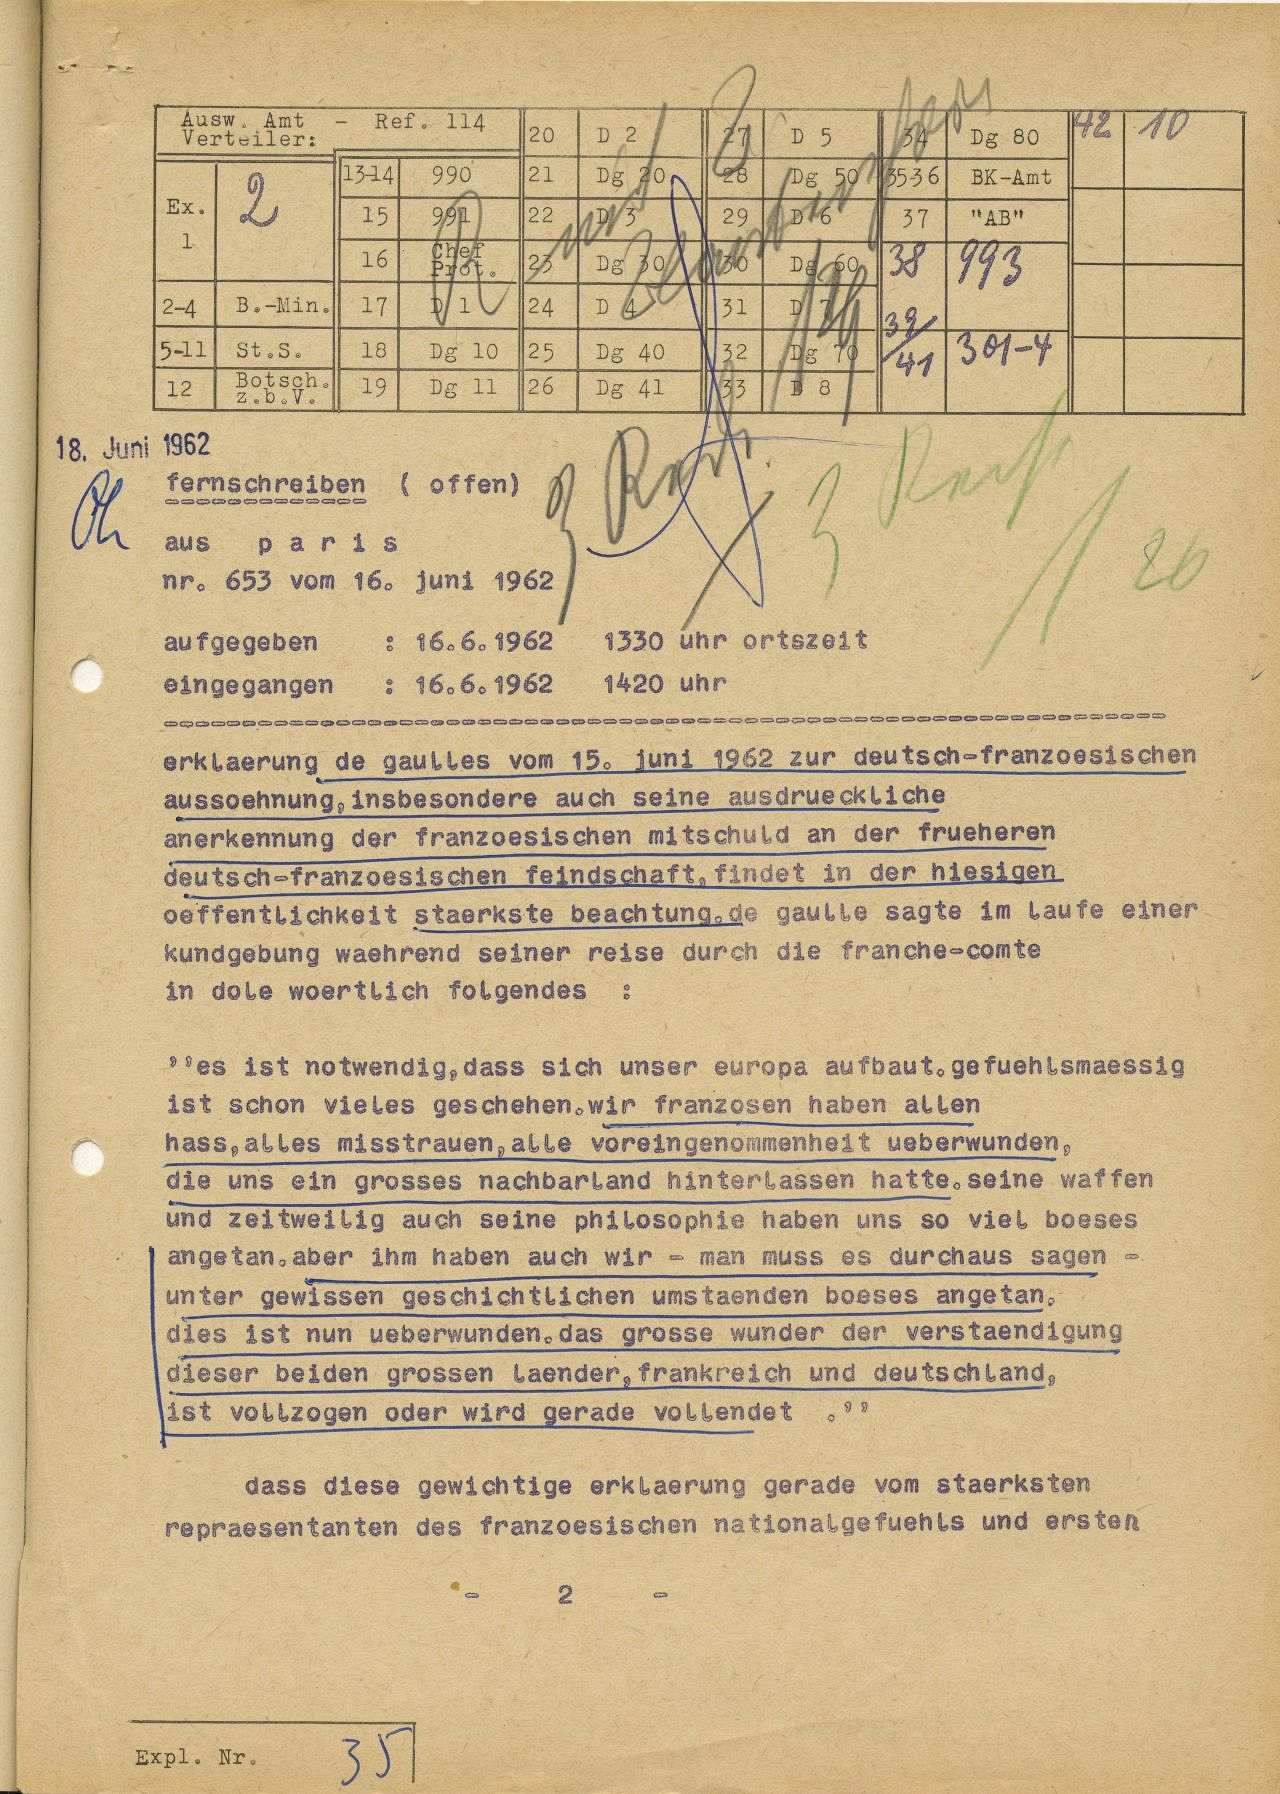 Ausw. Amt - Ref. 114
Verteiler:
Ex. 1 2
2-4 B.-Min.
5-11 St.S.
12 Botsch. z.b.V.
13-14 990
15 991
16 Chef Prot.
17 D 1
18 Dg 10
19 Dg 11
20 D 2
21 Dg 20
22 D 3
23 Dg 30
24 D 4
25 Dg 40
26 Dg 41
27 D 5
28 Dg 50
29 D 6
30 Dg 60
31 D 7
32 Dg 70
33 D 8
34 Dg 80
35-36 BK-Amt
37 "AB"
38 993
39/41 301-4
42 10
18. Juni 1962
fernschreiben ( offen)
aus p a r i s
nr. 653 vom 16. juni 1962
aufgegeben : 16.6.1962 1330 uhr ortszeit
eingegangen : 16.6.1962 1420 uhr
erklaerung de gaulles vom 15. juni 1962 zur deutsch-franzoesischen
aussoehnung,insbesondere auch seine ausdrueckliche
anerkennung der franzoesischen mitschuld an der frueheren
deutsch-franzoesischen feindschaft,findet in der hiesigen
oeffentlichkeit staerkste beachtung.de gaulle sagte im laufe einer
kundgebung waehrend seiner reise durch die franche-comte
in dole woertlich folgendes :
''es ist notwendig,dass sich unser europa aufbaut.gefuehlsmaessig
ist schon vieles geschehen.wir franzosen haben allen
hass,alles misstrauen,alle voreingenommenheit ueberwunden,
die uns ein grosses nachbarland hinterlassen hatte.seine waffen
und zeitweilig auch seine philosophie haben uns so viel boeses
angetan.aber ihm haben auch wir - man muss es durchaus sagen -
unter gewissen geschichtlichen umstaenden boeses angetan.
dies ist nun ueberwunden.das grosse wunder der verstaendigung
dieser beiden grossen laender,frankreich und deutschland,
ist vollzogen oder wird gerade vollendet .''
dass diese gewichtige erklaerung gerade vom staerksten
repraesentanten des franzoesischen nationalgefuehls und ersten
- 2 -
Expl. Nr. 35